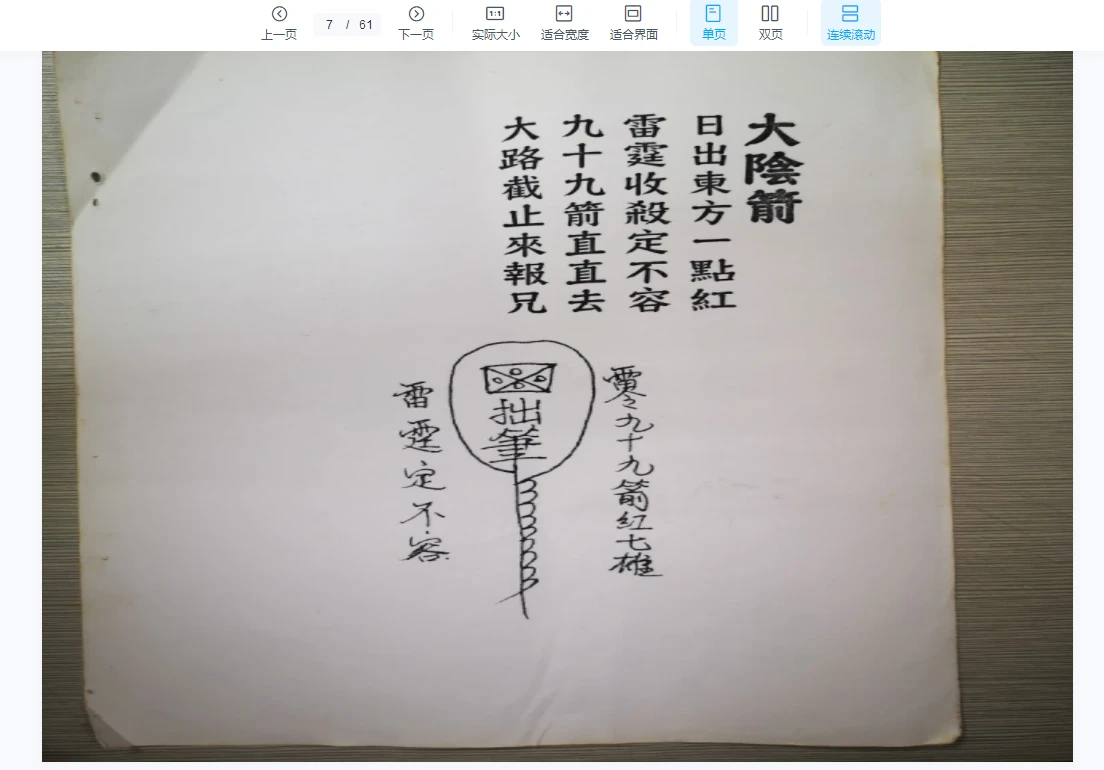 上一页
7 / 61
下一页
1:1
实际大小
适合宽度
适合界面
单页
双页
连续滚动
大陰箭
日出東方一點紅
雷霆收殺定不容
九十九箭直直去
大路截止來報兄
九十九箭紅七雄
拙筆
雷霆定不容